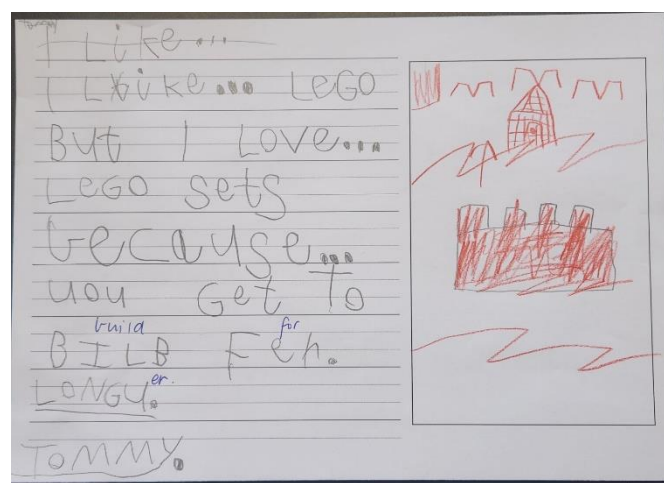 I Like...
I Like... LeGO
But I Love...
LeGO sets
because...
you Get To
build for
BILB Feh.
LONGU.er.
TOMMY.